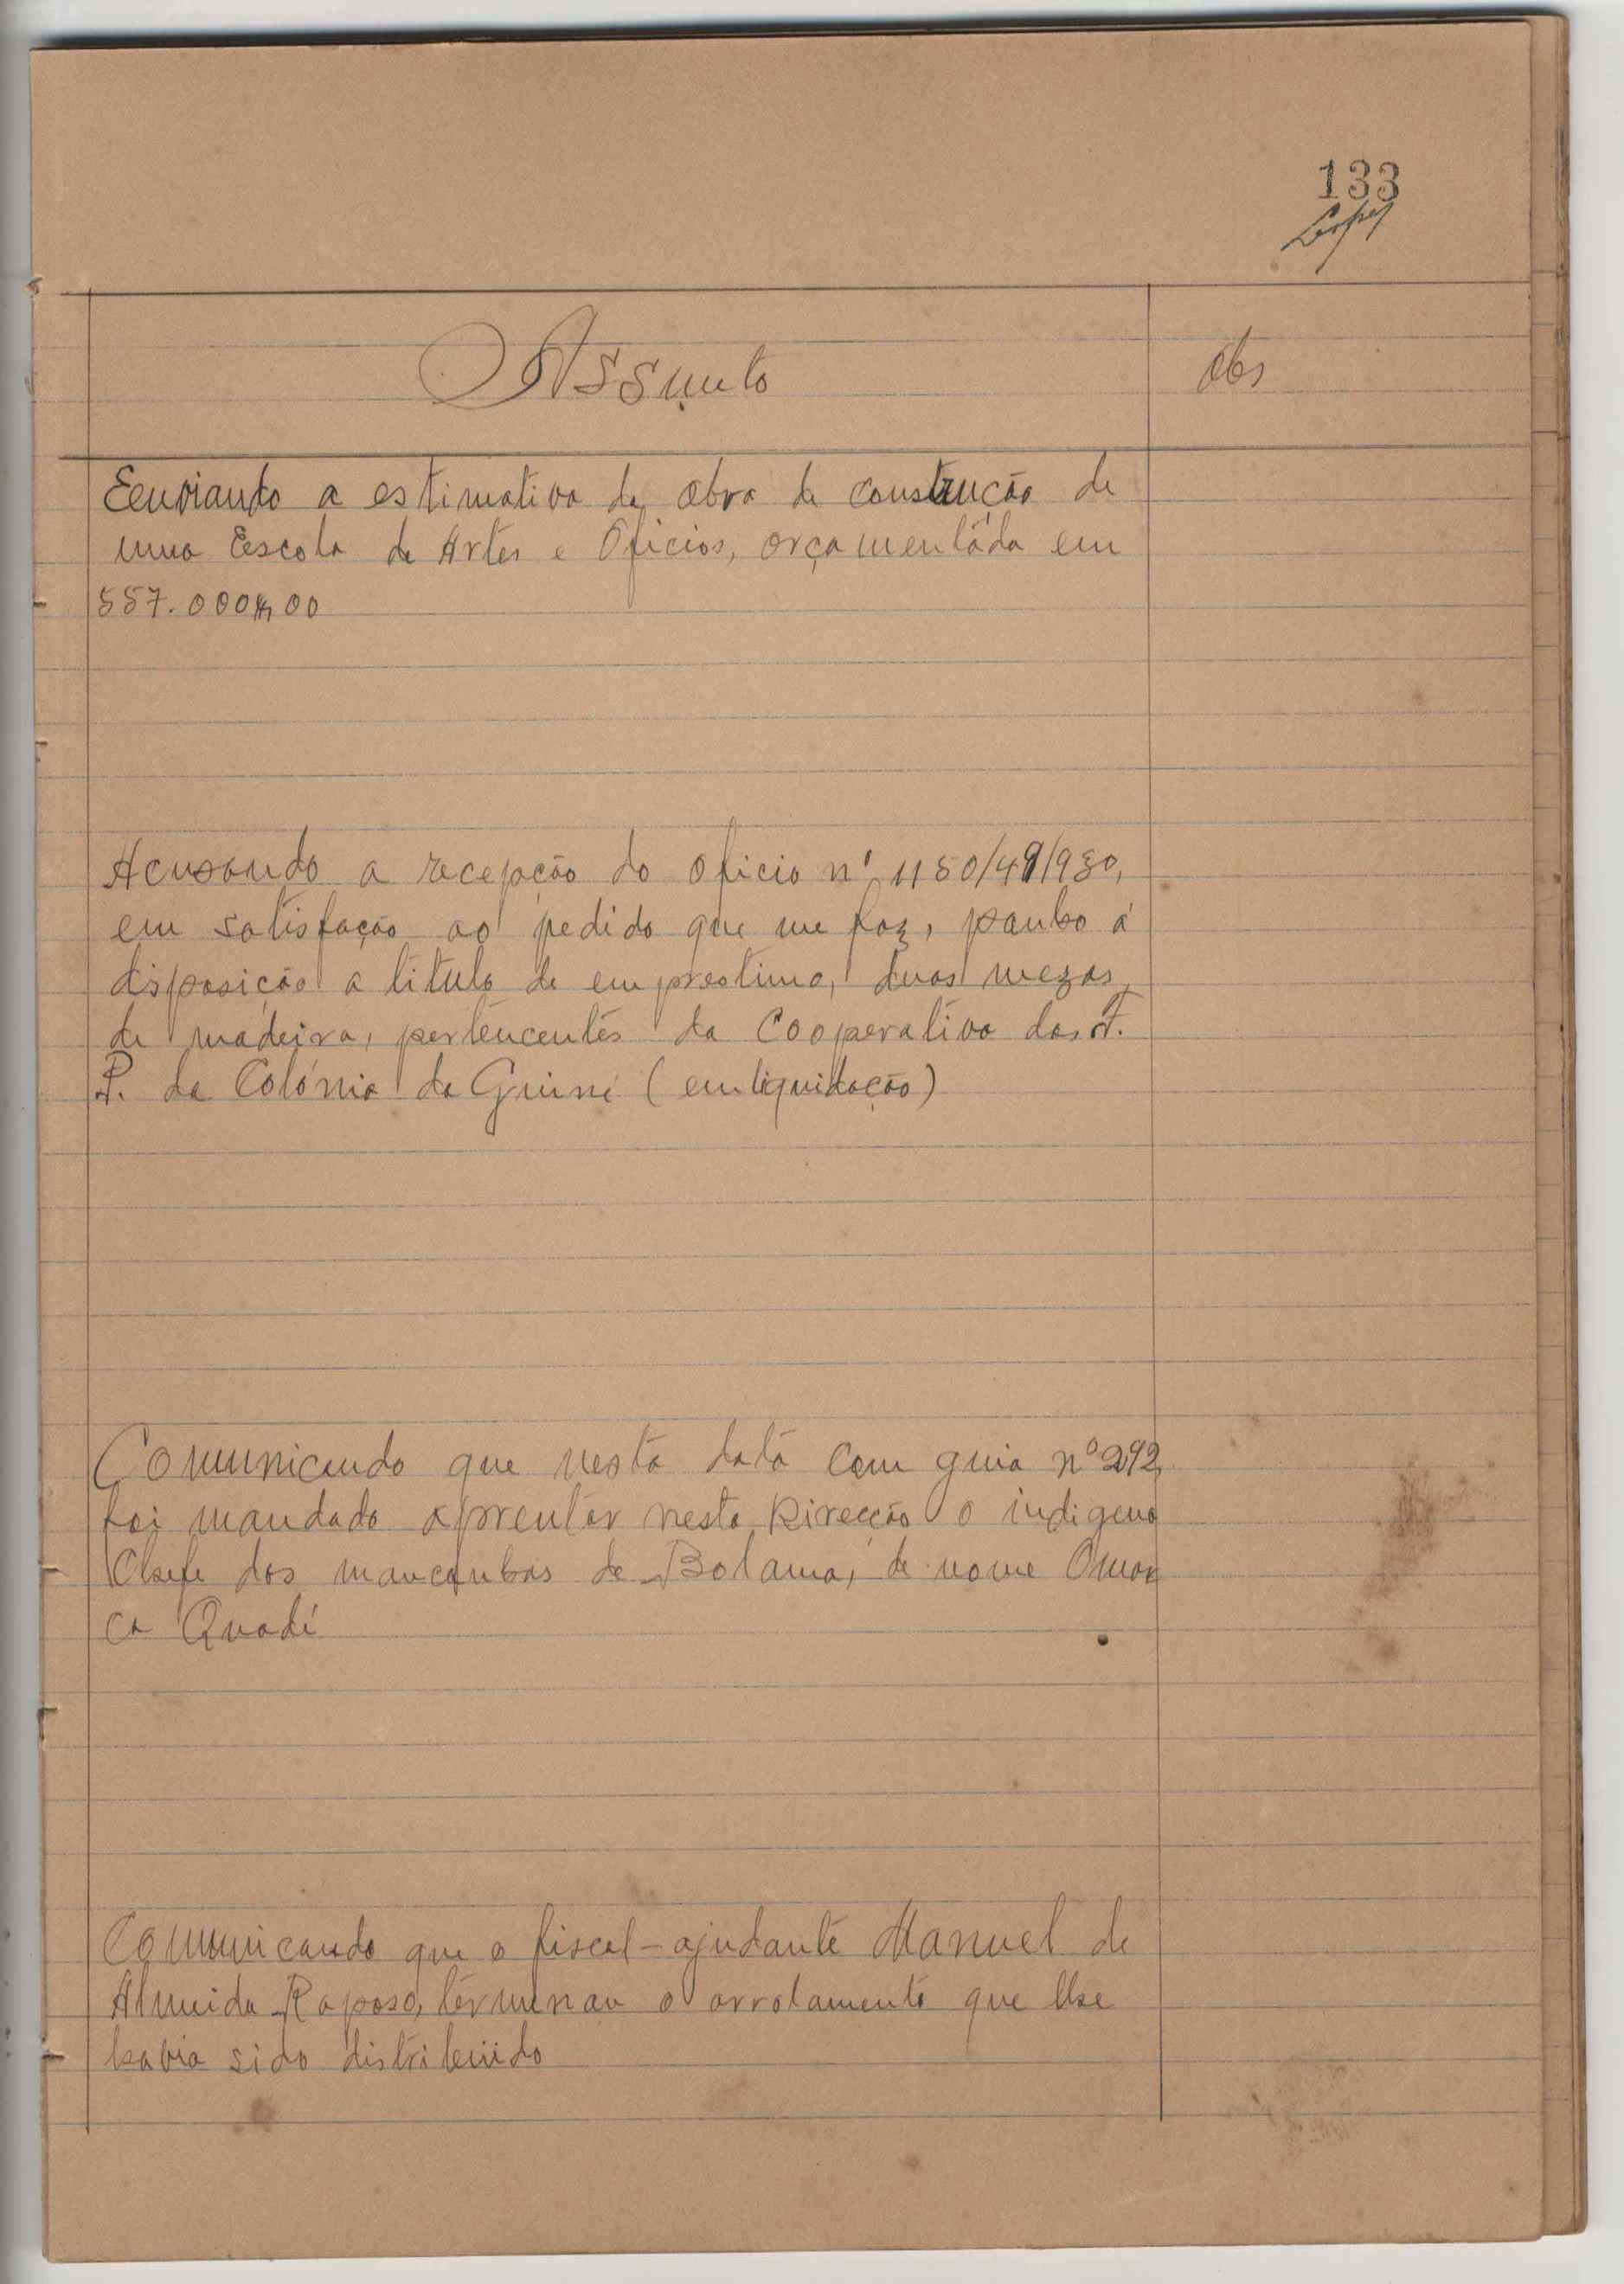 133
Lopes
Assunto
Obs
Eenviando a estimativa da obra de construção de
uma Eescola de Artes e Oficios, orçamentáda em
557.000$00
Acusando a recepção do oficio nº 1150/49/930,
em satisfação ao pedido que me faz, ponho á
disposição a titulo de emprestimo, duas mezas
de madeira, pertencentes da Cooperativa dos F.
P. da Colónia da Guiné (em liquidação)
Comunicando que nesta data com guia nº 292
foi mandado aprentar nesta Direcção o indigena
Chefe dos mancanhas de Bolama, de nome Omar
ca Quadé
Comunicando que o fiscal-ajudante Manuel de
Almeida Raposo, terminau o arrolamento que lhe
havia sido distribuido